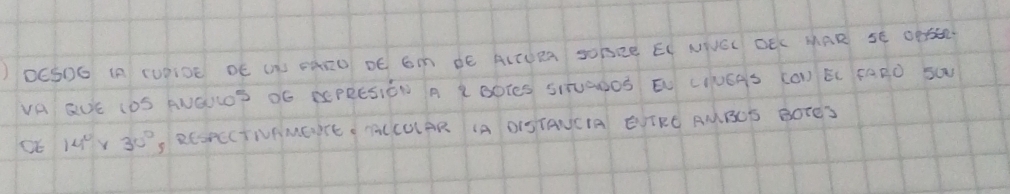 ) DESDE LA CUPIDE DE UN FARO DE 6m DE ALTURA SOBRE EL NIVEL DEL MAR SE OBSER-
VA QUE LOS ANGULOS DE DEPRESIÓN A 2 BOTES SITUADOS EN LINEAS CON EL FARO SON
DE 14° Y 30°, RESPECTIVAMENTE. CALCULAR LA DISTANCIA ENTRE AMBOS BOTES